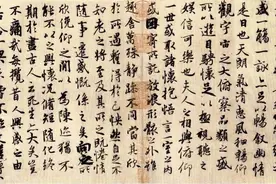 盛一觴一詠亦足以暢敘幽情
是日也天朗氣清惠風和暢仰
觀宇宙之大俯察品類之盛
所以遊目騁懷足以極視聽之
娛信可樂也夫人之相與俯仰
一世或取諸懷抱悟言一室之內
或因寄所託放浪形骸之外雖
趣舍萬殊靜躁不同當其欣
於所遇蹔得於己怏然自足不
知老之將至及其所之既惓情
隨事遷感慨係之矣向之所
欣俛仰之閒以為陳迹猶不
能不以之興懷況脩短隨化終
期於盡古人云死生亦大矣豈
不痛哉每攬昔人興感之由